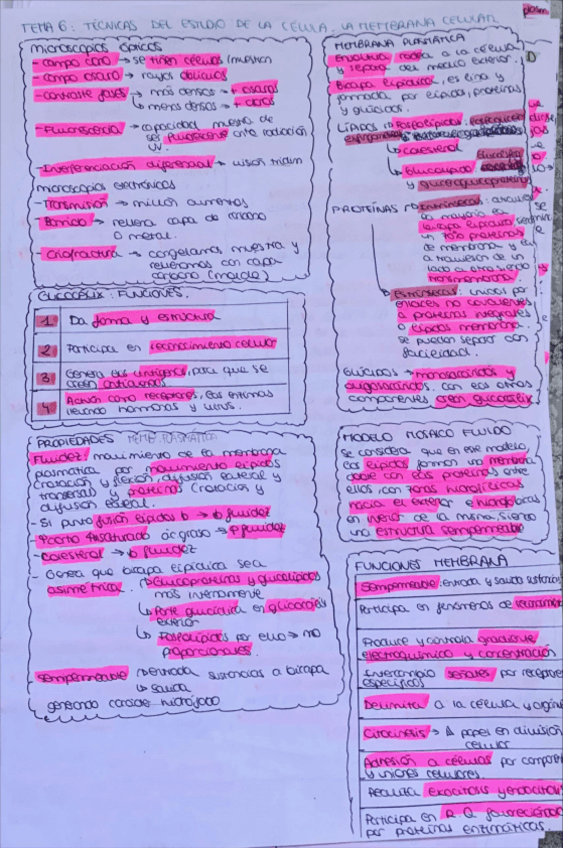 TEMA 6: TÉCNICAS DEL ESTUDIO DE LA CÉLULA. LA MEMBRANA CELULAR
microscopios ópticos
- campo claro → se tiñen células (muestra)
- campo oscuro → rayos oblicuos
- contraste fases → más densos → + oscuros
↳ menos densos → + claros
- Fluorescencia → capacidad muestra de
ser fluorescente ante radiación
UV.
- Interferenciación diferencial → visión tridim
microscopios electrónicos
- Transmisión → millón aumentos
- Barrido → rellena capa de carbono
o metal.
- Criofractura → congelamos muestra y
rellenamos con capa
carbono (molde)
GLICOCÁLIX: FUNCIONES.
1 Da forma y estructura
2 Participa en reconocimiento celular
3 Genera los antígenos, para que se
creen anticuerpos
4 Actúa como receptores, las enzimas
hormonas y virus.
PROPIEDADES MEMB. PLASMÁTICA
Fluidez: movimiento de la membrana
plasmática por movimiento lípidos
(rotación y flexión, difusión lateral y
transversal) y proteínas (rotación y
difusión lateral.
- Si punto fusión lípidos ↳ → ↳ fluidez
- Ácido graso → fluidez
- Colesterol → ↳ fluidez
- Genera que bicapa lipídica sea
asimétrica. Glucoproteínas y glucolípidos
más internamente
↳ Parte glucídica en glicocálix
exterior
↳ Fosfolípidos por ello → no
proporcionales.
Semipermeable → entrada sustancias a bicapa
↳ salida
generando
MEMBRANA PLASMÁTICA
Envoltura rodea a la célula
y separa del medio exterior.
Bicapa lipídica, es fina y
formada por lípidos, proteínas
y glúcidos.
LÍPIDOS → Fosfolípidos:
↳ colesterol
↳ Glucolípido
PROTEÍNAS → Intrínsecas:
la mayoría en
la bicapa lipídica
un 70% proteínas
de membrana y
atraviesan de un
lado a otro siendo
transmembrana.
↳ Extrínsecas: unidos por
enlaces no covalentes
a proteínas integrales
o lípidos membrana.
se pueden separar con
facilidad.
GLÚCIDOS → monosacáridos y
oligosacáridos. con los otros
componentes crean glucocálix
MODELO MOSAICO FLUIDO
Se considera que en este modelo,
los lípidos forman una membrana
doble con las proteínas entre
ellos, con zonas hidrofílicas
hacia el exterior e hidrófobas
en interior de la misma. siendo
una estructura semipermeable
FUNCIONES MEMBRANA
Semipermeable: entrada y salida
Participa en fenómenos de
Produce y controla gradiente
electroquímico y concentración
Intercambio señales por
específicos
Delimita a la célula y
Citocinesis → papel en división
celular
Adhesión a células por
y uniones celulares.
Realiza exocitosis y endocitosis
Participa en R.Q. favoreciéndolas
por proteínas enzimáticas.